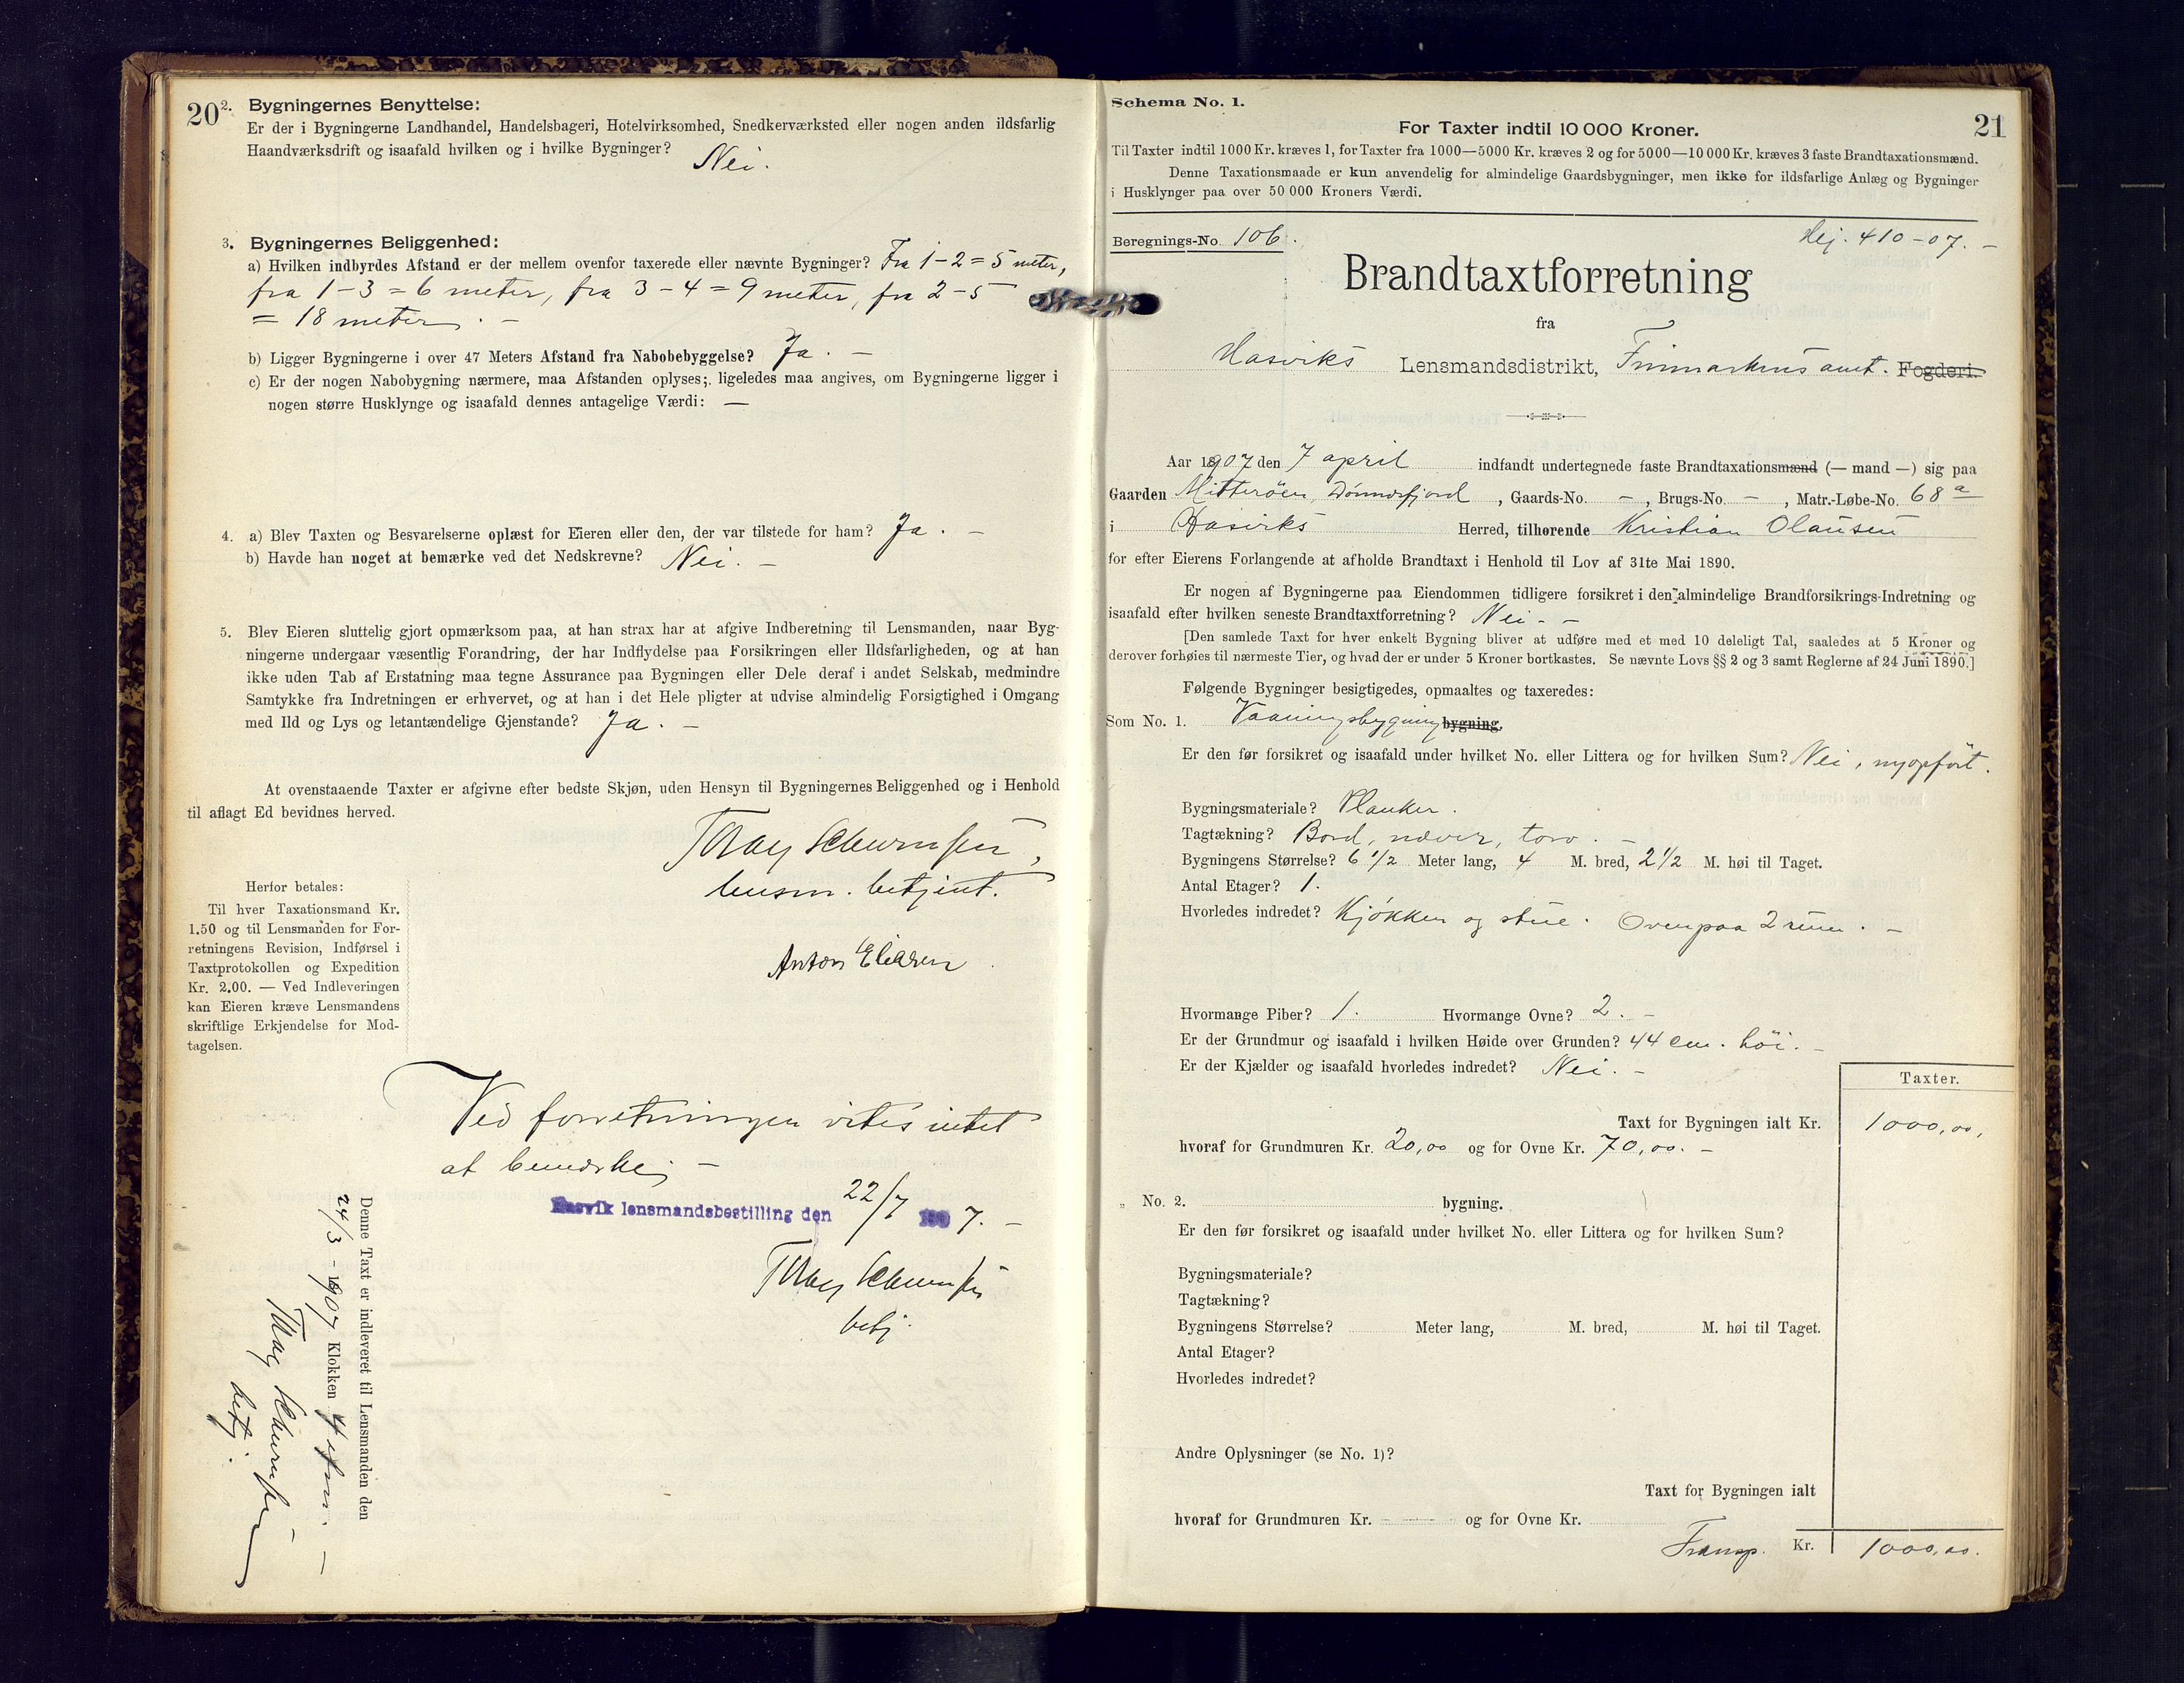 20
2. Bygningernes Benyttelse:
Er der i Bygningerne Landhandel, Handelsbageri, Hotelvirksomhed, Snedkerværksted eller nogen anden ildsfarlig
Haandværksdrift og isaafald hvilken og i hvilke Bygninger? Nei.
3. Bygningernes Beliggenhed:
a) Hvilken indbyrdes Afstand er der mellem ovenfor taxerede eller nævnte Bygninger? Fra 1-2 = 5 meter,
fra 1-3 = 6 meter, fra 3-4 = 9 meter, fra 2-5
= 18 meter. -
b) Ligger Bygningerne i over 47 Meters Afstand fra Nabobebyggelse? Ja. -
c) Er der nogen Nabobygning nærmere, maa Afstanden oplyses; ligeledes maa angives, om Bygningerne ligger i
nogen større Husklynge og isaafald dennes antagelige Værdi: -
4. a) Blev Taxten og Besvarelserne oplæst for Eieren eller den, der var tilstede for ham? Ja. -
b) Havde han noget at bemærke ved det Nedskrevne? Nei. -
5. Blev Eieren sluttelig gjort opmærksom paa, at han strax har at afgive Indberetning til Lensmanden, naar Byg-
ningerne undergaar væsentlig Forandring, der har Indflydelse paa Forsikringen eller Ildsfarligheden, og at han
ikke uden Tab af Erstatning maa tegne Assurance paa Bygningen eller Dele deraf i andet Selskab, medmindre
Samtykke fra Indretningen er erhvervet, og at han i det Hele pligter at udvise almindelig Forsigtighed i Omgang
med Ild og Lys og letantændelige Gjenstande? Ja. -
At ovenstaaende Taxter er afgivne efter bedste Skjøn, uden Hensyn til Bygningernes Beliggenhed og i Henhold
til aflagt Ed bevidnes herved.
lensm. betjent.
Anton Eliasen
Herfor betales:
Til hver Taxationsmand Kr.
1.50 og til Lensmanden for For-
retningens Revision, Indførsel i
Taxtprotokollen og Expedition
Kr. 2.00. — Ved Indleveringen
kan Eieren kræve Lensmandens
skriftlige Erkjendelse for Mod-
tagelsen.
Ved forretningen vides intet
at bemærke. -
Hasvik lensmandsbestilling den 22/7 1907. -
betj.
Denne Taxt er indleveret til Lensmanden den
24/3 - 1907 Klokken 4 efm. -
betj.
Schema No. 1.
21
For Taxter indtil 10 000 Kroner.
Til Taxter indtil 1000 Kr. kræves 1, for Taxter fra 1000—5000 Kr. kræves 2 og for 5000—10 000 Kr. kræves 3 faste Brandtaxationsmænd.
Denne Taxationsmaade er kun anvendelig for almindelige Gaardsbygninger, men ikke for ildsfarlige Anlæg og Bygninger
i Husklynger paa over 50 000 Kroners Værdi.
Beregnings-No. 106.
410-07. -
Brandtaxtforretning
fra
Hasviks Lensmandsdistrikt, Finmarkens amt. Fogderi.
Aar 1907 den 7 april indfandt undertegnede faste Brandtaxationsmænd (— mand —) sig paa
Gaarden Mitterøen, Dønnesfjord, Gaards-No. -, Brugs-No. -, Matr.-Løbe-No. 68 a
i Hasviks Herred, tilhørende Kristian Olausen
for efter Eierens Forlangende at afholde Brandtaxt i Henhold til Lov af 31te Mai 1890.
Er nogen af Bygningerne paa Eiendommen tidligere forsikret i den almindelige Brandforsikrings-Indretning og
isaafald efter hvilken seneste Brandtaxtforretning? Nei. -
[Den samlede Taxt for hver enkelt Bygning bliver at udføre med et med 10 deleligt Tal, saaledes at 5 Kroner og
derover forhøies til nærmeste Tier, og hvad der er under 5 Kroner bortkastes. Se nævnte Lovs §§ 2 og 3 samt Reglerne af 24 Juni 1890.]
Følgende Bygninger besigtigedes, opmaaltes og taxeredes:
Som No. 1. Vaaningsbygning bygning.
Er den før forsikret og isaafald under hvilket No. eller Littera og for hvilken Sum? Nei, nyopført.
Bygningsmateriale? Planker.
Tagtækning? Bord, næver, torv. -
Bygningens Størrelse? 6 1/2 Meter lang, 4 M. bred, 2 1/2 M. høi til Taget.
Antal Etager? 1.
Hvorledes indredet? Kjøkken og stue. Ovenpaa 2 rum. -
Hvormange Piber? 1. Hvormange Ovne? 2. -
Er der Grundmur og isaafald i hvilken Høide over Grunden? 44 cm. høi. -
Er der Kjælder og isaafald hvorledes indredet? Nei. -
Taxter.
Taxt for Bygningen ialt Kr. 1000,00,
hvoraf for Grundmuren Kr. 20,00 og for Ovne Kr. 70,00. -
„ No. 2. bygning.
Er den før forsikret og isaafald under hvilket No. eller Littera og for hvilken Sum?
Bygningsmateriale?
Tagtækning?
Bygningens Størrelse? Meter lang, M. bred, M. høi til Taget.
Antal Etager?
Hvorledes indredet?
Andre Oplysninger (se No. 1)?
Taxt for Bygningen ialt
hvoraf for Grundmuren Kr. og for Ovne Kr.
Transp. Kr. 1000,00.